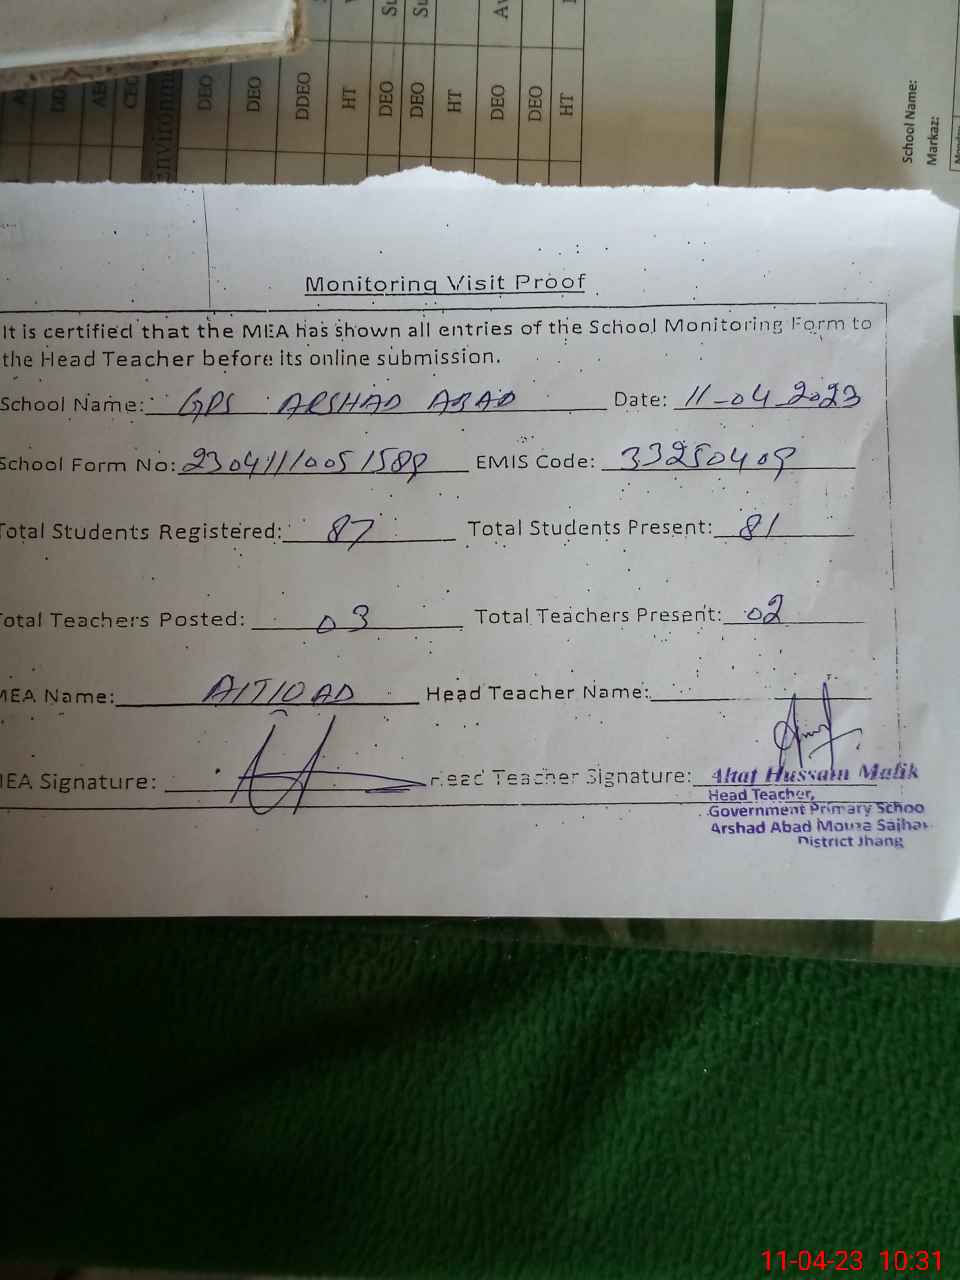 DEO
DEO
DDEO
HT
DEO
DEO
HT
DEO
DEO
HT
School Name:
Markaz:
Monitoring Visit Proof
It is certified that the MEA has shown all entries of the School Monitoring Form to
the Head Teacher before its online submission.
School Name: GPS ARSHAD ABAD Date: 11-04-2023
School Form No: EMIS Code: 33250409
Total Students Registered: 87 Total Students Present: 81
Total Teachers Posted: 03 Total Teachers Present: 02
MEA Name: Head Teacher Name:
MEA Signature: Head Teacher Signature: Hussain Malik
Head Teacher,
Government Primary Schoo
Arshad Abad Mouza
District Jhang
11-04-23 10:31